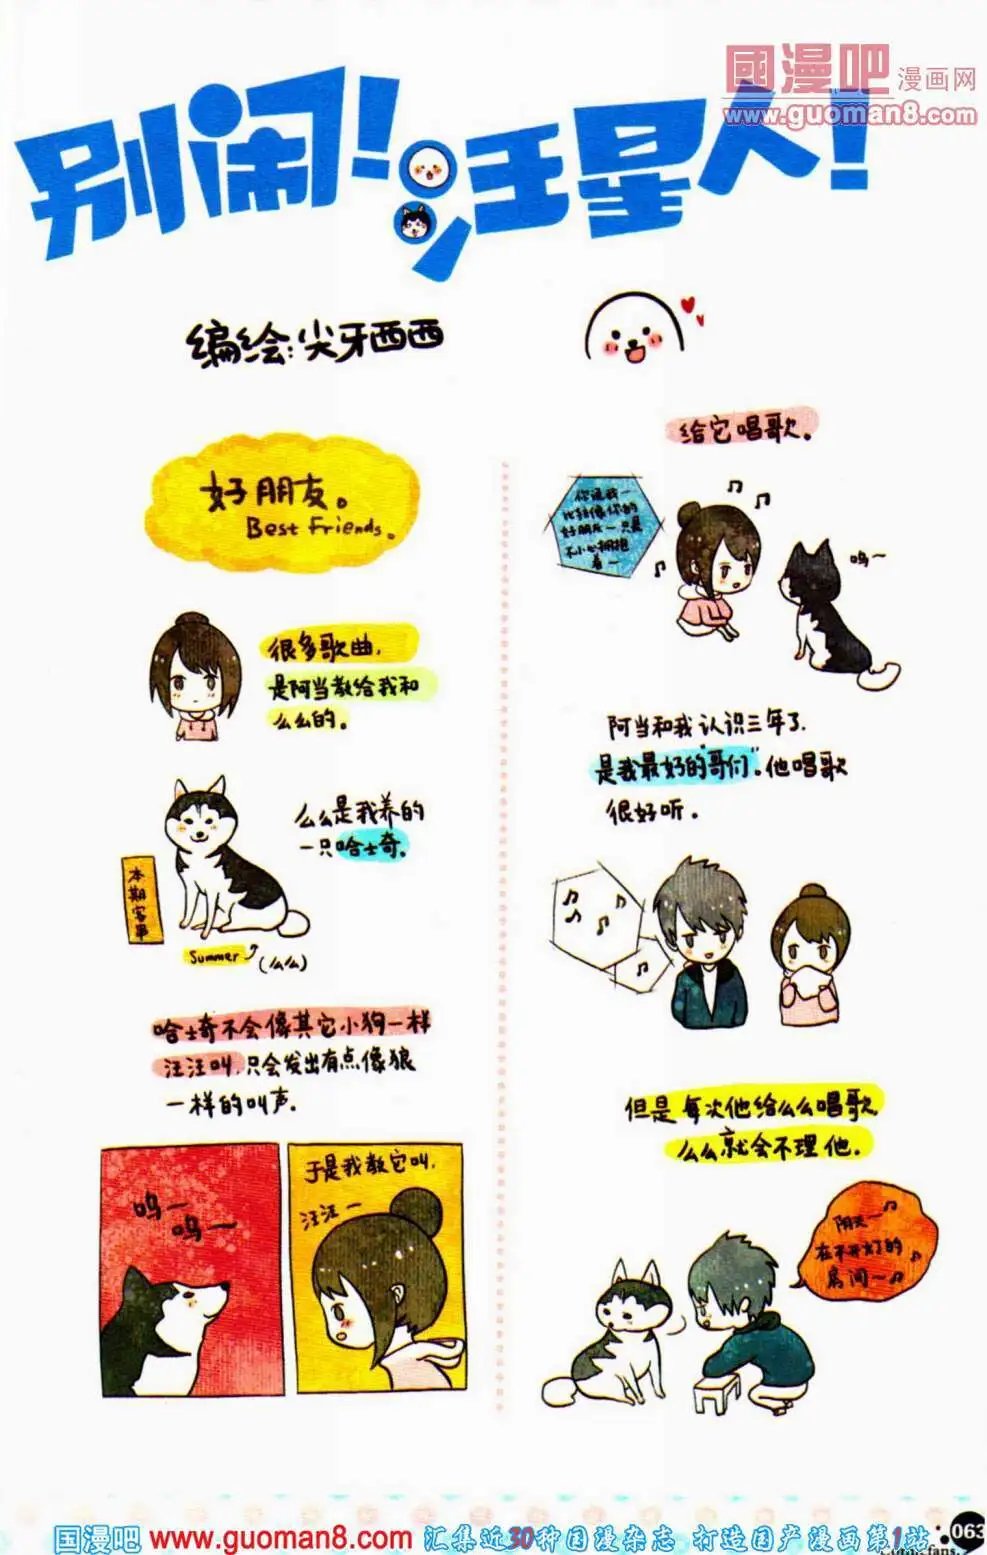 國漫吧 漫画网
www.guoman8.com
别闹！汪星人！
编绘：尖牙西西
好朋友。
Best Friends。
很多歌曲，
是阿当教给我和
么么的。
么么是我养的
一只哈士奇。
本期客串
Summer
(么么)
哈士奇不会像其它小狗一样
汪汪叫，只会发出有点像狼
一样的叫声。
呜一
呜一
于是我教它叫，
汪汪一
给它唱歌。
你说我一
比较像你的
好朋友一只是
不小心拥抱
着一
呜一
阿当和我认识三年了，
是我“最好的哥们”。他唱歌
很好听。
但是每次他给么么唱歌，
么么就会不理他。
阴天一
在不开灯的
房间～
国漫吧 www.guoman8.com 汇集近30种国漫杂志 打造国产漫画第1站
063
Comicfans.